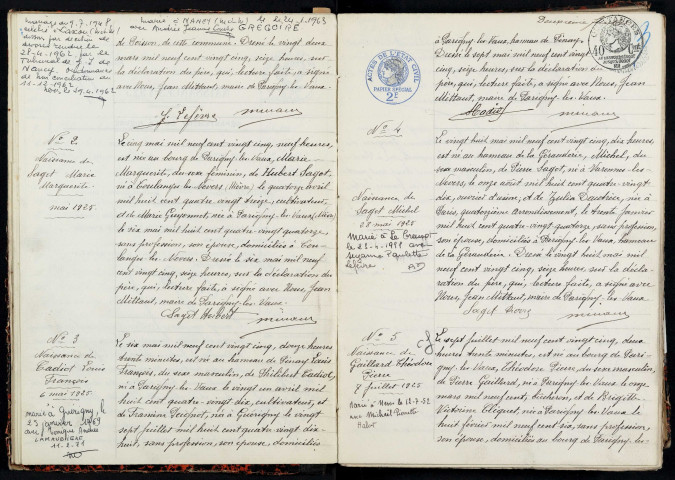 mariage du 9.7.1948
célébré à Laxou (M.et M.)
dissous par décision de
divorce rendue le
28.4.1962 par le
Tribunal de G. I. de
Nancy. Ordonnance
de non conciliation du
11-12-1961
marié à NANCY (M.et M.) le 24-1-1963
avec Andrée Jeanne Emilie GREGOIRE
de Poison de cette commune. Dressé le vingt deux
mars mil neuf cent vingt cinq, seize heures, sur
la déclaration du père, qui, lecture faite, a signé
avec Nous, Jean Mittaut, maire de Parigny-les-Vaux.
J. Lefèvre
N° 2
Naissance de
Saget Marie
Marguerite
mai 1925
Le cinq mai mil neuf cent vingt cinq, neuf heures,
est née au bourg de Parigny-les-Vaux, Marie
Marguerite, du sexe féminin, de Hubert Saget,
né à Coulanges-les-Nevers (Nièvre), le quatorze avril
mil huit cent quatre vingt treize, cultivateur,
et de Marie Guyonnet, née à Parigny-les-Vaux, (Nièvre)
le six mai mil huit cent quatre-vingt quatorze,
sans profession, son épouse, domiciliés à Cou-
langes-les-Nevers. Dressé le six mai mil neuf
cent vingt cinq, seize heures, sur la déclaration du
père, qui, lecture faite, a signé avec Nous, Jean
Mittaut, maire de Parigny-les-Vaux.
Saget Hubert
N° 3
Naissance de
Cadiot Louis
François
6 mai 1925
marié à Guérigny, le
23 1969
avec
11-2-71
Le six mai mil neuf cent vingt cinq, douze heures
trente minutes, est né au hameau de Pinay Louis
François, du sexe masculin, de Philibert Cadiot,
né à Parigny-les-Vaux le vingt un avril mil
huit cent quatre-vingt dix, cultivateur, et
de Françoise, née à Guérigny le vingt
sept juillet mil huit cent quatre vingt dix-
huit, sans profession, son épouse, domiciliés
Deuxième
à Parigny-les-Vaux, hameau de Pinay. Dressé le
sept mai mil neuf cent vingt
cinq, seize heures, sur la déclaration du
père, qui, lecture faite, a signé avec Nous, Jean
Mittaut, maire de Parigny-les-Vaux.
Cadiot
ACTES DE L'ÉTAT CIVIL
PAPIER SPÉCIAL
2F
N° 4
Naissance de
Saget Michel
28 mai 1925
marié à La
le 23-4-1951 avec
Suzanne Paulette
Lefèvre
Le vingt huit mai mil neuf cent vingt cinq, dix heures,
est né au hameau de la Gérauderie, Michel, du
sexe masculin, de Pierre Saget, né à Varennes-les-
Nevers, le onze août mil huit cent quatre-vingt
dix, ouvrier d'usine, et de Zélia Dautrice, née à
Paris, quatorzième arrondissement, le trente janvier
mil huit cent quatre-vingt quatorze, sans profession,
son épouse, domiciliés à Parigny-les-Vaux, hameau
de la Gérauderie. Dressé le vingt huit mai mil
neuf cent vingt cinq, seize heures, sur la décla-
ration du père, qui, lecture faite, a signé avec
Nous, Jean Mittaut, maire de Parigny-les-Vaux.
Saget Pierre
N° 5
Naissance de
Gaillard Théodore
Pierre
8 juillet 1925
Marié à le 12-7-52
avec
Le sept juillet mil neuf cent vingt cinq, deux
heures trente minutes, est né au bourg de Pari-
gny-les-Vaux, Théodore Pierre, du sexe masculin,
de Pierre Gaillard, né à Parigny-les-Vaux le onze
mars mil neuf cent, bûcheron, et de Brigitte
Victoire Cléquet, née à Parigny-les-Vaux le
huit février mil neuf cent six, sans profession,
son épouse, domiciliés au bourg de Parigny-les-